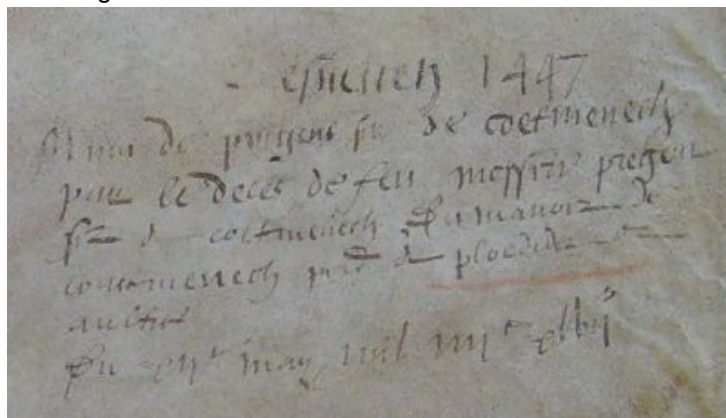 1447
de prigent sr de coetmenech
par le deces de feu messire pregen
sr de coetmenech du manoir de
coetmenech de ploedider
autres
Du may mil iiiic xlvii